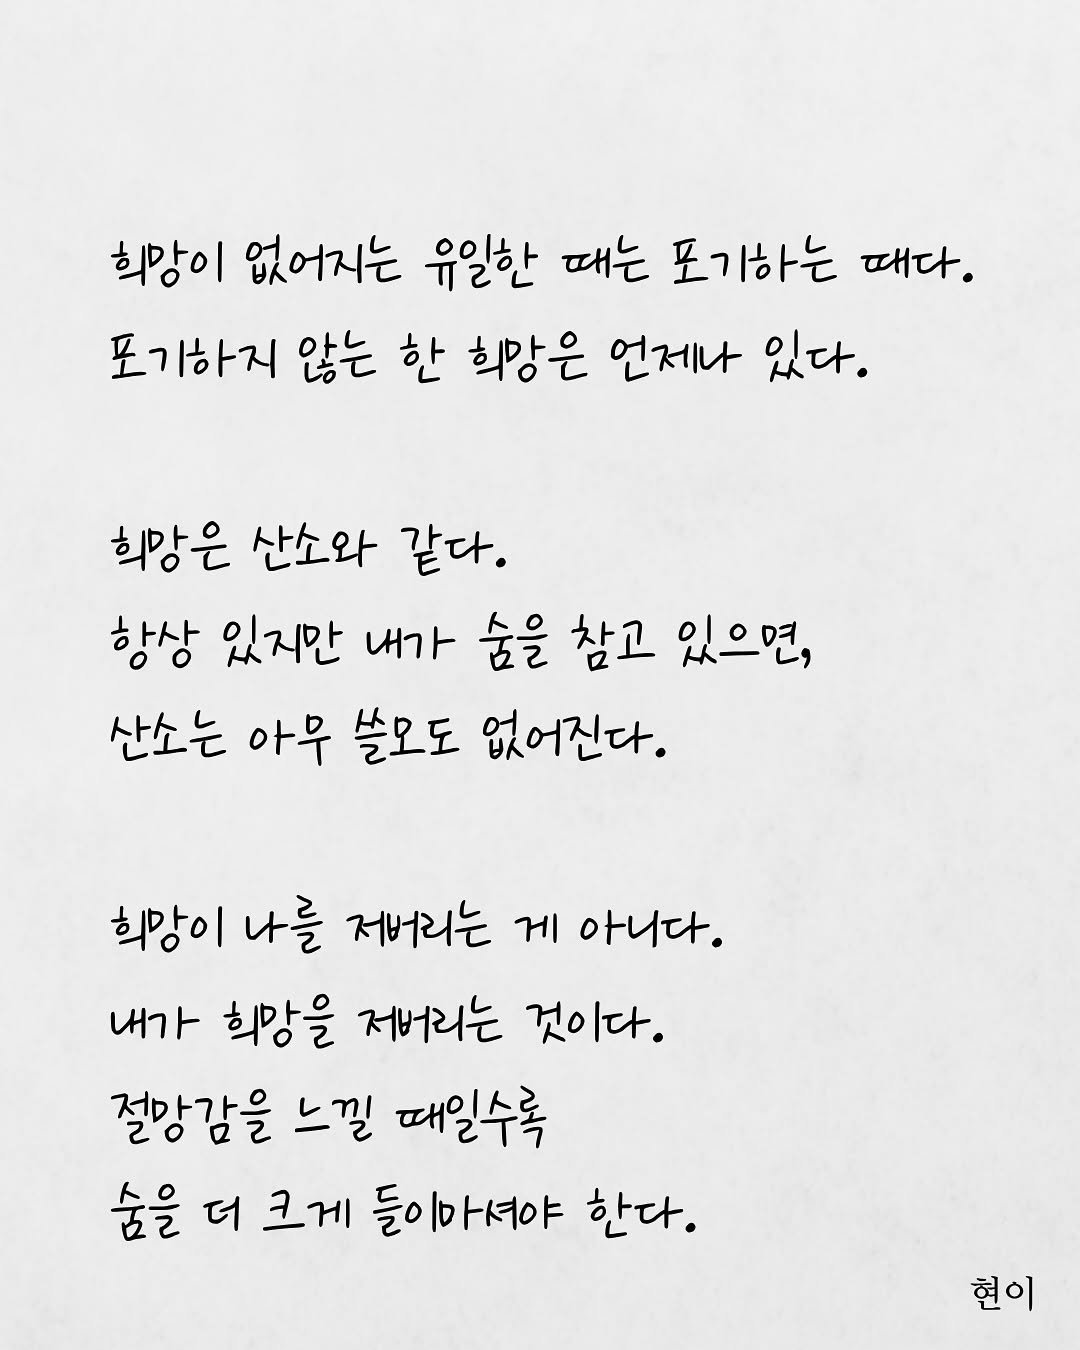 희망이 없어지는 유일한 때는 포기하는 때다.
포기하지 않는 한 희망은 언제나 있다.
희망은 산소와 같다.
항상 있지만 내가 숨을 참고 있으면,
산소는 아무 쓸모도 없어진다.
희망이 나를 저버리는 게 아니다.
내가 희망을 저버리는 것이다.
절망감을 느낄 때일수록
숨을 더 크게 들이마셔야 한다.
현이